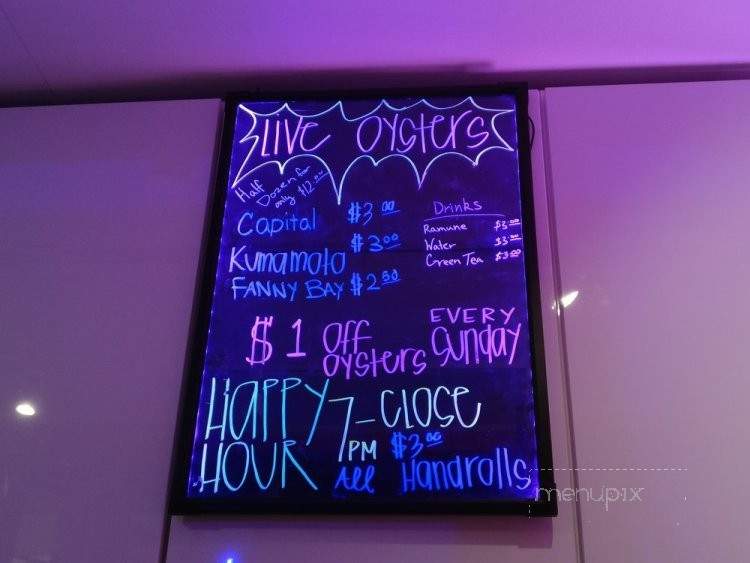 Live Oysters
Half Dozen for
only $12.00
Capital $3.00
Kumamoto $3.00
Fanny Bay $2.50
Drinks
Ramune $3.00
Water $3.00
Green Tea $3.00
$1 Off Oysters
EVERY Sunday
Happy Hour
7PM-Close
$3.00
All Handrolls
menupix